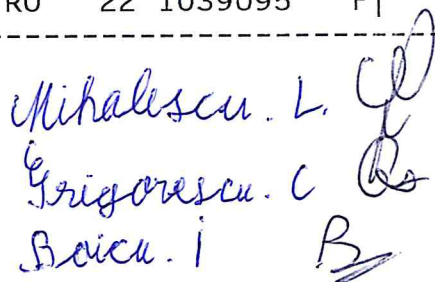 RO 22 1039095 F|
Mihalescu. L.
Grigorescu. C
Boicu. I